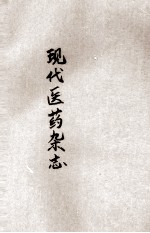 现代医药杂志